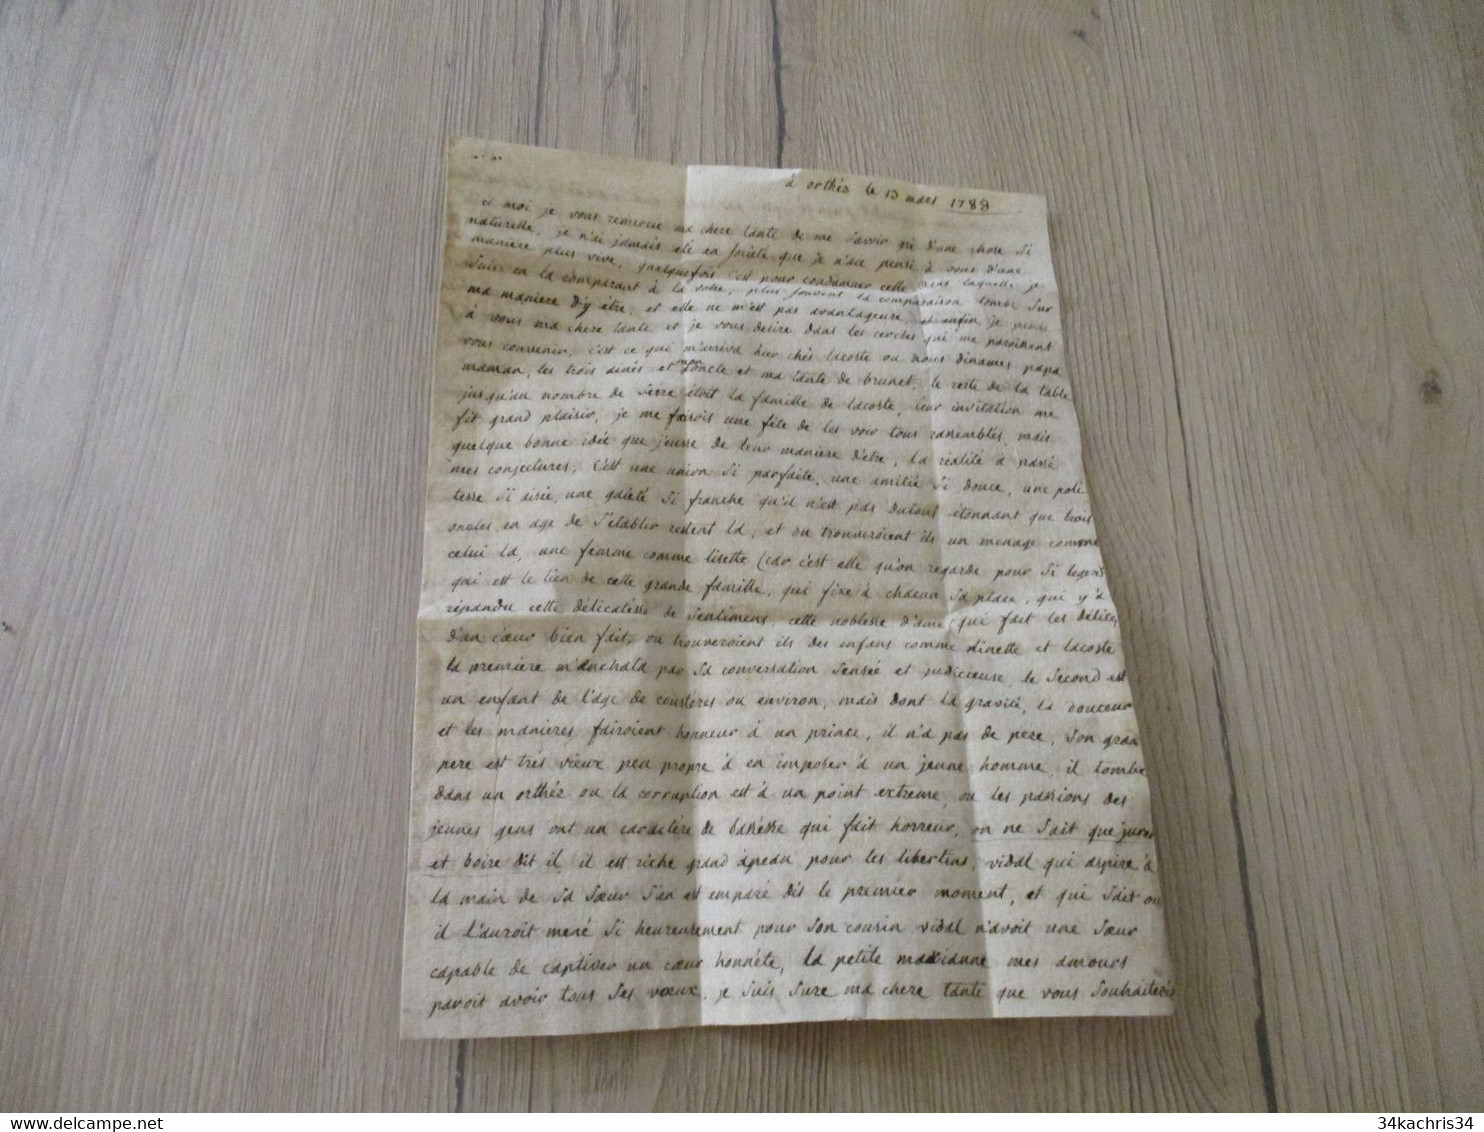 à orthéz le 13 mars 1789
et moi je vous remercie ma chere tante de me savoir gré d'une chose si
naturelle, je n'ai jamais été en societé que je n'aie pensé à vous d'une
maniere plus vive, quelquefois c'est pour condamner cette laquelle je
suis en la comparant à la votre, plus souvent la comparaison tombe sur
ma maniere d'y être, et elle ne m'est pas avantageuse, et enfin je pense
à vous ma chere tante et je vous desire dans les cercles qui me paroissent
vous convenir, c'est ce qui m'arriva hier chés lacoste ou nous dinames, papa
maman, les trois ainés et mon oncle et ma tante de brunet, le reste de la table
jusqu'au nombre de seize étoit la famille de lacoste, leur invitation me
fit grand plaisir, je me faisois une fête de les voir tous rassemblés, mais
quelque bonne idée que j'eusse de leur maniere d'etre, la réalité à passé
mes conjectures, c'est une union si parfaite, une amitié si douce, une poli
tesse si aisée, une gaieté si franche qu'il n'est pas dutout étonnant que trois
oncles en age de s'etablir restent là, et ou trouveroient ils un menage comme
celui là, une femme comme lisette (car c'est elle qu'on regarde pour si
qui est le lien de cette grande famille, qui fixe à chacun sa place, qui y'a
répandu cette délicatesse de sentimens, cette noblesse d'ame qui fait les délices
d'un cœur bien fait, ou trouveroient ils des enfans comme dinette et lacoste
la premiere m'enchata par sa conversation sensée et judicieuse, le second est
un enfant de l'age de ou environ, mais dont la gravité, la douceur
et les manieres fairoient honneur à un prince, il n'a pas de pere, son grand
pere est trés vieux peu propre à en imposer à un jeune homme, il tombe
dans un orthéz ou la corruption est à un point extreme, ou les passions des
jeunes gens ont un caractére de bassesse qui fait horreur, on ne sait que jurer
et boire dit il, il est riche grand apeau pour les libertins, vidal qui aspire à
la main de sa sœur s'en est emparé dès le premier moment, et qui sait ou
il l'auroit mené si heureusement pour son cousin vidal n'avoit une sœur
capable de captiver un cœur honnéte, la petite marianne mes amours
paroit avoir tous ses vœux, je suis sure ma chere tante que vous souhaiteriés
34kachris34